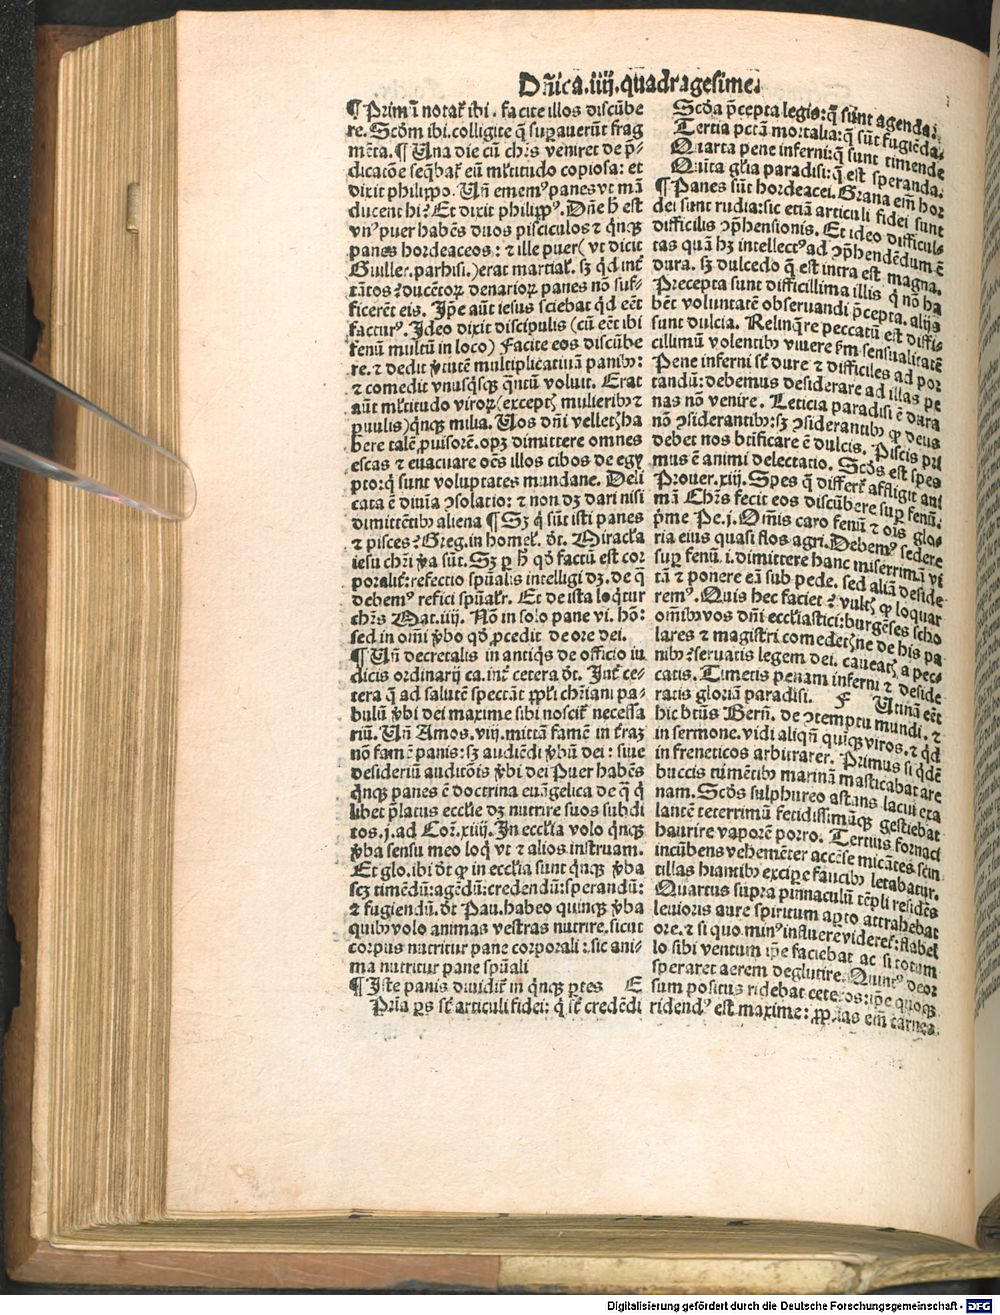 Dñica.iiij.quadragesime.
¶ Primũ notat̃ ibi . facite illos discũbe
re. Scðm ibi.colligite q̃ suꝑauerũt frag
mẽta. ¶ Una die cũ chr̃s veniret de p̃-
dicatõe seq̃bat̃ eũ ml̃titudo copiosa: et
dixit philippo. Uñ ememꝰ panes vt mã
ducent hi? Et dixit philippꝰ. Dñe h̃ est
vnꝰ puer habẽs duos pisciculos ⁊ q̃nqꝫ
panes hordeaceos: ⁊ ille puer( vt dicit
Guiller.parhisi.)erat martial̃. sꝫ qd̃ int̃
tãtos? ducẽtoꝝ denarioꝝ panes nõ suf-
ficerẽt eis. Ip̃e aũt iesus sciebat qd̃ eẽt
facturꝰ. Ideo dixit discipulis (cũ eẽt ibi
fenũ multũ in loco) Facite eos discũbe
re. ⁊ dedit ṽtutẽ multiplicatiuã panibꝰ:
⁊ comedit vnusq̃sqꝫ q̃ntũ voluit. Erat
aũt ml̃titudo viroꝝ(exceptꝭ mulieribꝰ ⁊
ꝑuulis)q̃nqꝫ milia. Uos dñi velletꝭ ha
bere talẽ ꝓuisorẽ.opꝫ dimittere omnes
escas ⁊ euacuare oẽs illos cibos de egy
pto:q̃ sunt voluptates mundane. Deli
cata ẽ diuĩa ꝯsolatio: ⁊ non dꝫ dari nisi
dimittẽtibꝰ aliena ¶ Sꝫ q̃ sũt isti panes
⁊ pisces? Greg.in homel̃. õt. Miracl̃a
iesu chr̃i ṽa sũt. Sꝫ ꝑ h̃ qð factũ est cor
poralit̃:refectio spũalis intelligi dꝫ. de q̃
debemꝰ refici spũalr̃. Et de ista loq̃tur
chr̃s Mat.iiij. Nõ in solo pane vi. hõ:
sed in om̃i ṽbo qð ꝓcedit de ore dei.
¶ Uñ decretalis in antiq̃s de officio iu
dicis ordinarij ca.int̃ cetera õt. Int̃ ce-
tera q̃ ad salutẽ spectãt ppl̃i chr̃iani pa-
bulũ ṽbi dei maxime sibi noscit̃ necessa
riũ. Uñ Amos.viij.mittã famẽ in t̃rã:
nõ famẽ panis: sꝫ audiẽdi ṽbũ dei : siue
desideriũ auditõis ṽbi dei Puer habẽs
q̃nqꝫ panes ẽ doctrina euãgelica de q̃ q̃
libet p̃latus eccl̃ie dꝫ nutrire suos subdi
tos.j.ad Cor̃.xiiij. In eccl̃ia volo q̃nqꝫ
ṽba sensu meo loq̃ vt ⁊ alios instruam.
Et glo.ibi õt ꝙ in eccl̃ia sunt q̃nqꝫ ṽba
scꝫ timẽdũ:agẽdũ:credendũ:sperandũ:
⁊ fugiendũ. õt Pau.habeo quinqꝫ ṽba
quibꝰ volo animas vestras nutrire.sicut
corpus nutritur pane corporali : sic ani-
ma nutritur pane spũali
¶ Iste panis diuidit̃ in q̃nqꝫ ꝑtes E
Pr̃ia ꝑs st̃ articuli fidei: q̃ st̃ credẽdi
Scða p̃cepta legis:q̃ sũnt agenda:
Tertia pctã mortalia:q̃ sũt fugiẽda.
Quarta pene inferni:q̃ sunt timende
Quĩta gl̃ia paradisi:q̃ est speranda.
¶ Panes sũt hordeacei. Grana em̃ hor
dei sunt rudia:sic etiã articuli fidei sunt
difficilis ꝯp̃hensionis. Et ideo difficul-
tas quã hꝫ intellectꝰ ad ꝯp̃hendẽdum ẽ
dura. sꝫ dulcedo q̃ est intra est magna.
Precepta sunt difficillima illis q̃ nõ ha
bẽt voluntatẽ obseruandi p̃cepta. alijs
sunt dulcia. Relinq̃re peccatũ est diffi-
cillimũ volentibꝰ viuere ẜm sensualitatẽ
Pene inferni st̃ dure ⁊ difficiles ad por
tandũ:debemus desiderare ad illas pe
nas nõ venire. Leticia paradisi ẽ dura
nõ ꝯsiderantibꝰ:sꝫ ꝯsiderantibꝰ ꝙ deus
debet nos btĩficare ẽ dulcis. Piscis pri
mus ẽ animi delectatio. Scðs est spes
Prouer.xiij. Spes q̃ differt̃ affligit ani
mã Chr̃s fecit eos discũbere suꝑ fenũ.
p̃me Pe.j. Om̃is caro fenũ ⁊ oĩs glo-
ria eius quasi flos agri. Debemꝰ sedere
suꝑ fenũ.i.dimittere hanc miserrimã vi
tã ⁊ ponere eã sub pede. sed aliã deside-
remꝰ. Quis hec faciet? vultꝭ ꝙ loquar
om̃ibꝰ vos dñi eccl̃iastici:burgẽses scho
lares ⁊ magistri comedetꝭne de his pa
nibꝰ? seruatis legem dei. caueatꝭ a pec-
catis. Timetis penam inferni ⁊ deside
ratis gloriã paradisi. F Utinã eẽt
hic btũs Bern̄. de ꝯtemptu mundi. ⁊
in sermone.vidi aliqñ quinqꝫ viros. ⁊ qd̃
in freneticos arbitrarer. Primus si qdẽ
buccis tumẽtibꝰ marinã masticabat are
nam. Scðs sulphureo astans lacui exa
lantẽ teterrimũ fetidissimũqꝫ gestiebat
haurire vaporẽ porro. Tertius fornaci
incũbens vehemẽter accẽse micãtes scin
tillas hiantibꝰ exciꝑe faucibꝰ letabatur.
Quartus supra pinnaculũ tẽpli residẽs
leuioris aure spiritum apto attrahebat
ore. ⁊ si quo minꝰ influere videret̃:flabel
lo sibi ventum ip̃e faciebat ac si totum
speraret aerem deglutire. Quintꝰ deor
sum positus ridebat ceteros:ip̃e quoqꝫ
ridendꝰ est maxime: ꝓp̃ias em̃ carnes
Digitalisierung gefördert durch die Deutsche Forschungsgemeinschaft - DFG